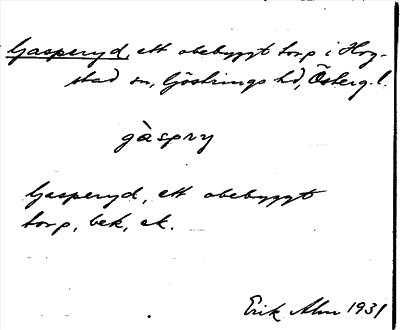 Gasperyd, ett obebyggt torp i Hog-
stad sn, Göstrings hd, Österg. l.
gàspry
Gasperyd, ett obebyggt
torp, bek, ek.
Erik Alm 1931